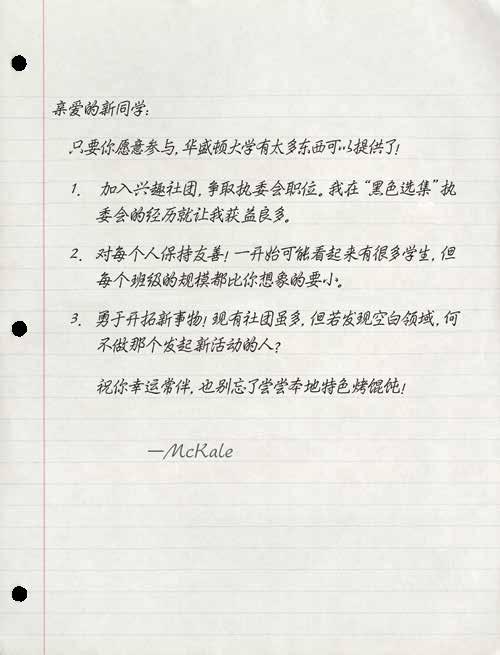 亲爱的新同学:
只要你愿意参与, 华盛顿大学有太多东西可以提供了!
1. 加入兴趣社团, 争取执委会职位。我在“黑色选集”执
委会的经历就让我获益良多。
2. 对每个人保持友善! 一开始可能看起来有很多学生, 但
每个班级的规模都比你想象的要小。
3. 勇于开拓新事物! 现有社团虽多, 但若发现空白领域, 何
不做那个发起新活动的人?
祝你幸运常伴, 也别忘了尝尝本地特色烤馄饨!
—McKale